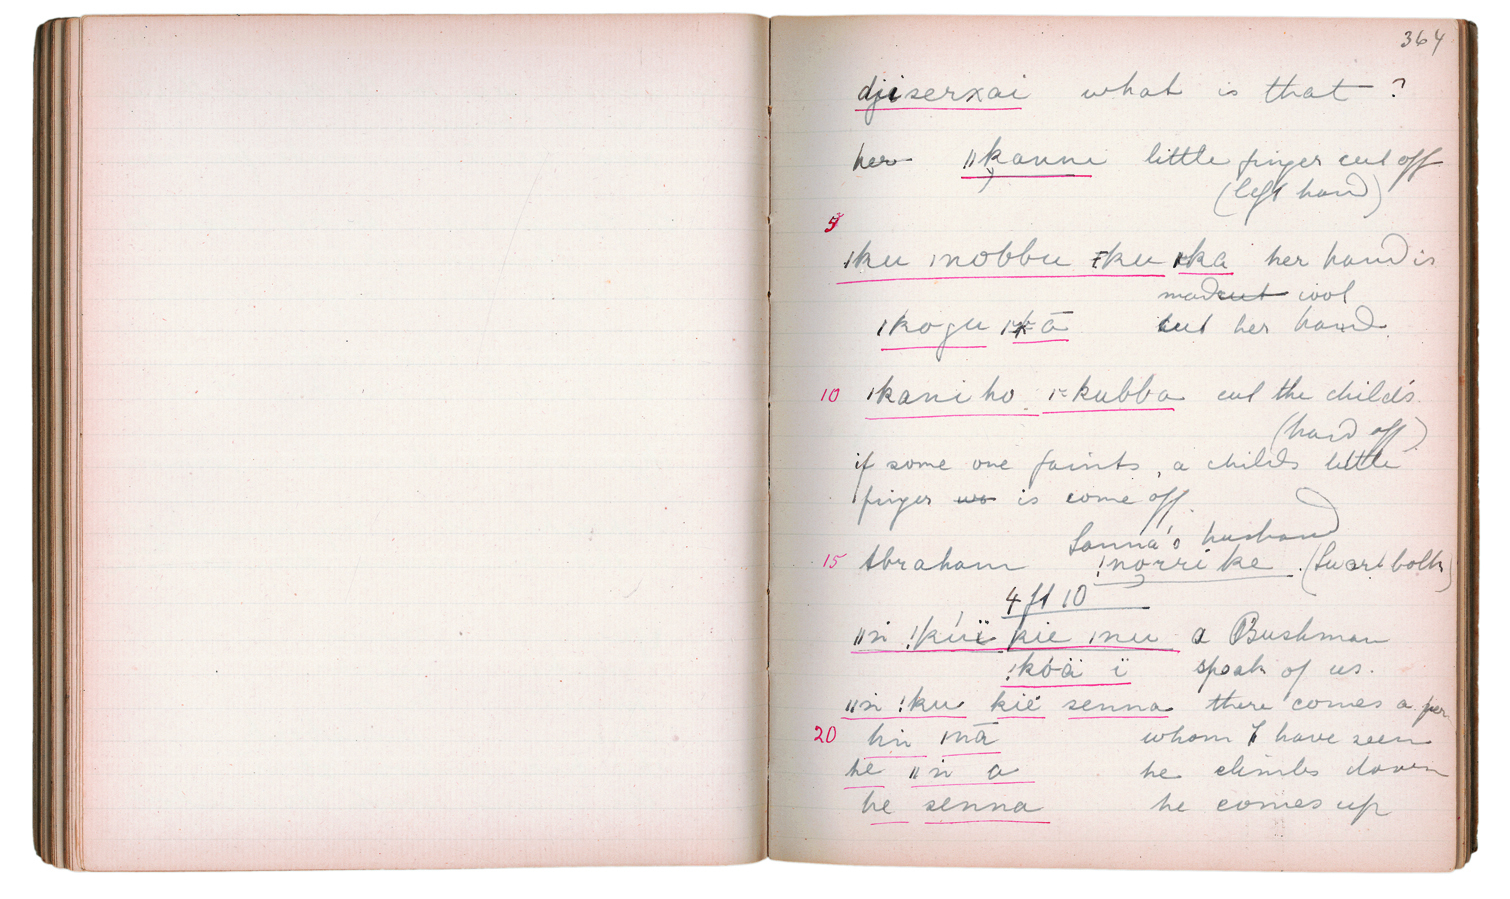 364
djiserxai what is that ?
her ǁkanni little finger cut off
(left hand)
5
ǀku ǀnobbu ǂku ǀka her hand is
cool
ǀkogu cut her hand
10 ǀkani ho ǀ=kubba cut the child's
(hand off)
if some one faints, a childs little
finger wo is come off
Sanna's husband
15 Abraham !norri ke (Swartbolk)
4 ft 10
ǁn !kúï kie ǀnu a Bushman
!kóä ï speak of us.
ǁn !ku kië senna there comes a per
20 hn ǀnā whom I have seen
he ǁn a he climbs down
he senna he comes up